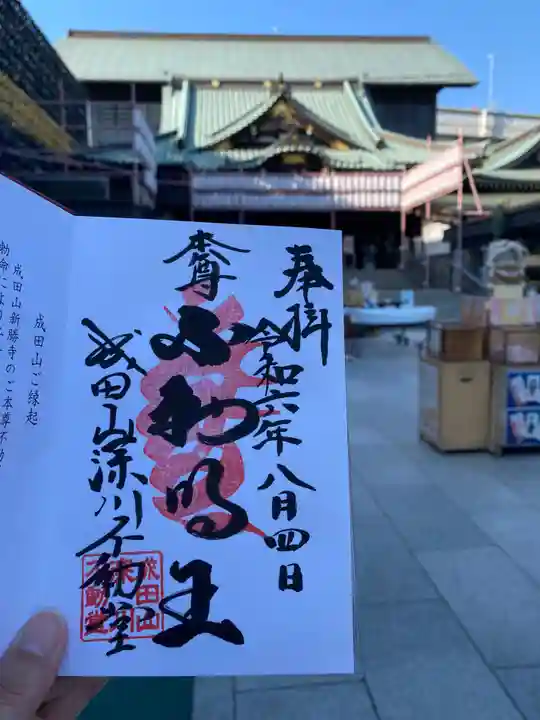 奉拝
令和六年八月四日
本尊
不動明王
成田山深川不動堂
成田山
深川
不動堂
成田山ご縁起
成田山新勝寺のご本尊不動
勅命により